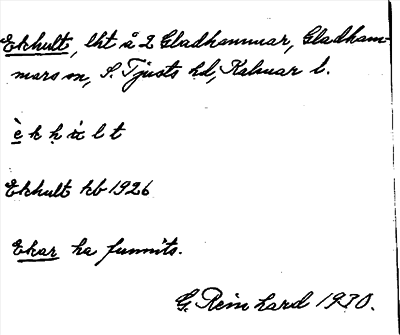 Ekhult, lht å 2 Gladhammar, Gladham-
mars sn, S. Tjusts hd, Kalmar l.
Ekhult kb 1926
Ekar ha funnits.
G. Reinhard 1930.